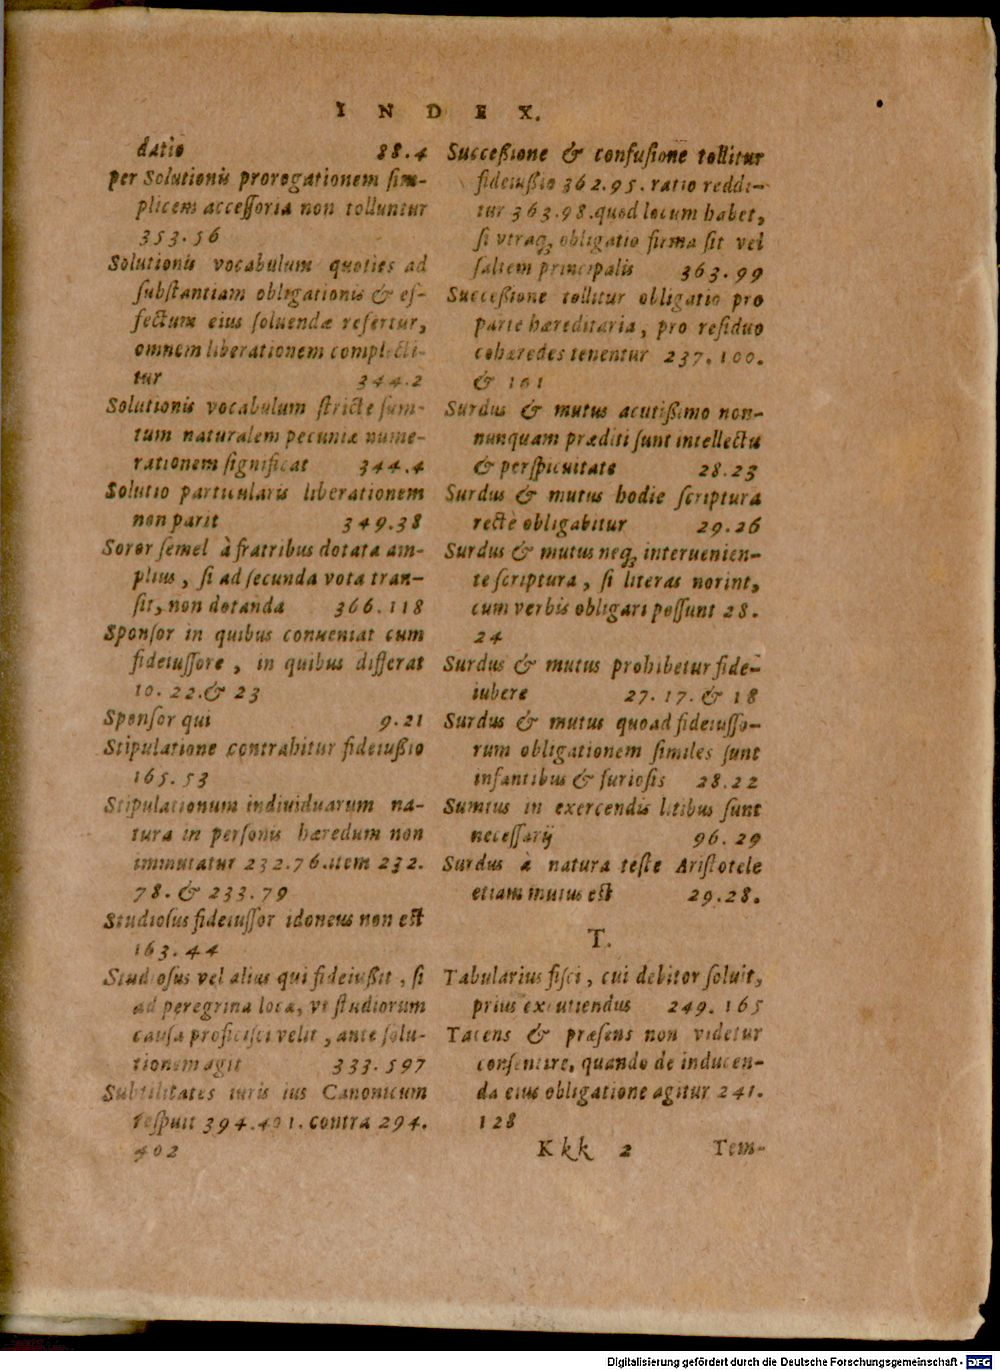 INDEX.
datio 88.4
per Solutionis prorogationem sim-
plicem accessoria non tolluntur
353.56
Solutionis vocabulum quoties ad
substantiam obligationis & ef-
fectum eius soluendæ refertur,
omnem liberationem complecti-
tur 344.2
Solutionis vocabulum stricte sum-
tum naturalem pecuniæ nume-
rationem significat 344.4
Solutio particularis liberationem
non parit 349.38
Soror semel à fratribus dotata am-
plius, si ad secunda vota tran-
sit, non dotanda 366.118
Sponsor in quibus conueniat cum
fideiussore, in quibus differat
10.22.& 23
Sponsor qui 9.21
Stipulatione contrahitur fideiußio
165.53
Stipulationum indiuiduarum na-
tura in personis hæredum non
immutatur 232.76.item 232.
78.& 233.79
Studiosus fideiussor idoneus non est
163.44
Studiosus vel alius qui fideiußit, si
ad peregrina loca, vt studiorum
causa proficisci velit, ante solu-
tionem agit 333.597
Subtilitates iuris ius Canonicum
respuit 394.401.contra 294.
402
Succeßione & confusione tollitur
fideiußio 362.95.ratio reddi-
tur 363.98.quod locum habet,
si vtraq; obligatio firma sit vel
saltem principalis 363.99
Succeßione tollitur obligatio pro
parte hæreditaria, pro residuo
cohæredes tenentur 237.100.
& 101
Surdus & mutus acutißimo non-
nunquam præditi sunt intellectu
& perspicuitate 28.23
Surdus & mutus hodie scriptura
rectè obligabitur 29.26
Surdus & mutus neq; interuenien-
te scriptura, si literas norint,
cum verbis obligari possunt 28.
24
Surdus & mutus prohibetur fide-
iubere 27.17.& 18
Surdus & mutus quoad fideiusso-
rum obligationem similes sunt
infantibus & furiosis 28.22
Sumtus in exercendis litibus sunt
necessarij 96.29
Surdus à natura teste Aristotele
etiam mutus est 29.28.
T.
Tabularius fisci, cui debitor soluit,
prius excutiendus 249.165
Tacens & præsens non videtur
consentire, quando de inducen-
da eius obligatione agitur 241.
128
Kkk 2 Tem-
Digitalisierung gefördert durch die Deutsche Forschungsgemeinschaft - DFG